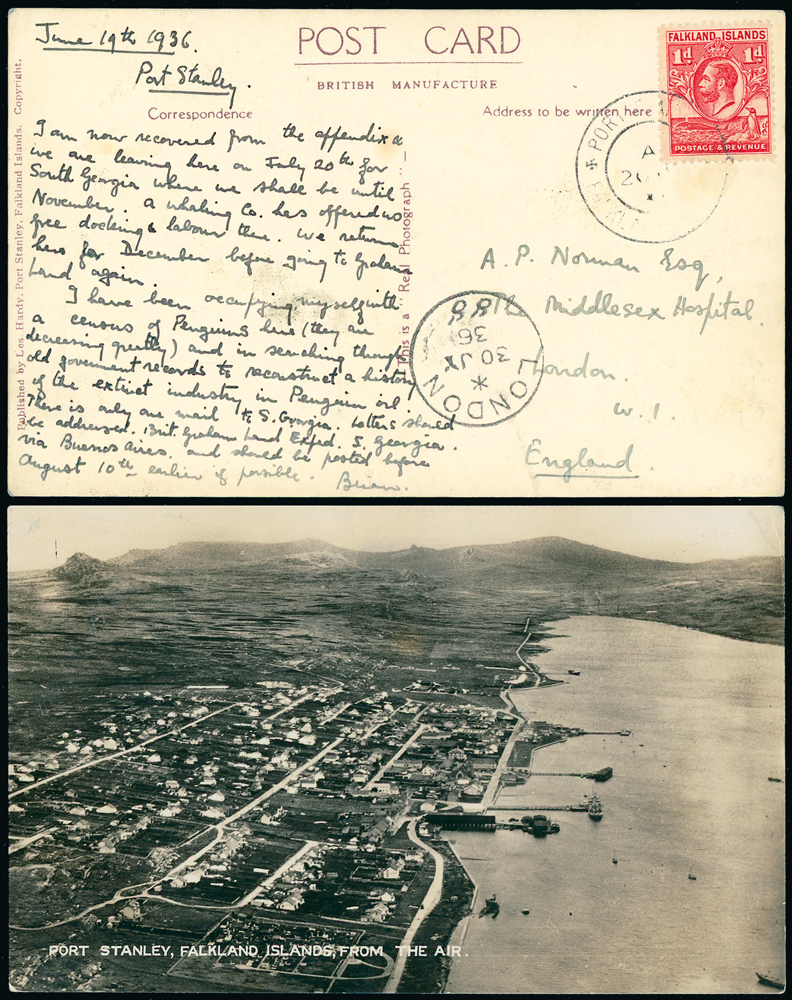 June 19th 1936.
Port Stanley.
POST CARD
BRITISH MANUFACTURE
Correspondence
Address to be written here
FALKLAND ISLANDS
1d 1d
POSTAGE & REVENUE
Published by Les Hardy, Port Stanley, Falkland Islands. Copyright.
This is a "Real Photograph"
I am now recovered from the appendix &
we are leaving here on July 20th for
South Georgia where we shall be until
November. A whaling Co. has offered us
free docking & labour there. We return
here for December before going to Graham
Land again.
I have been occupying myself with
a census of Penguins here (they are
decreasing greatly) and in searching through
old government records to reconstruct a history
of the extinct industry in Penguin oil.
There is only one mail to S. Georgia. Letters should
be addressed. Brit. Graham Land Exped. S. Georgia.
via Buenos Aires. and should be posted before
August 10th earlier if possible. Brian.
A. P. Norman Esq,
Middlesex Hospital.
London.
W. 1.
England.
LONDON
30 JY
36
PORT
PORT STANLEY, FALKLAND ISLANDS, FROM THE AIR.